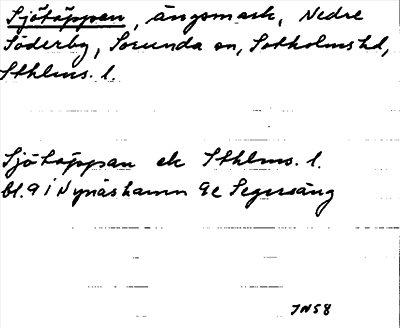 Sjötäppan, ängsmark, Nedre
Söderby, Sorunda sn, Sotholms hd,
Sthlms. l.
Sjötäppan ek Sthlms. l.
bl. 9 i Nynäshamn 9c Segersäng
JN58